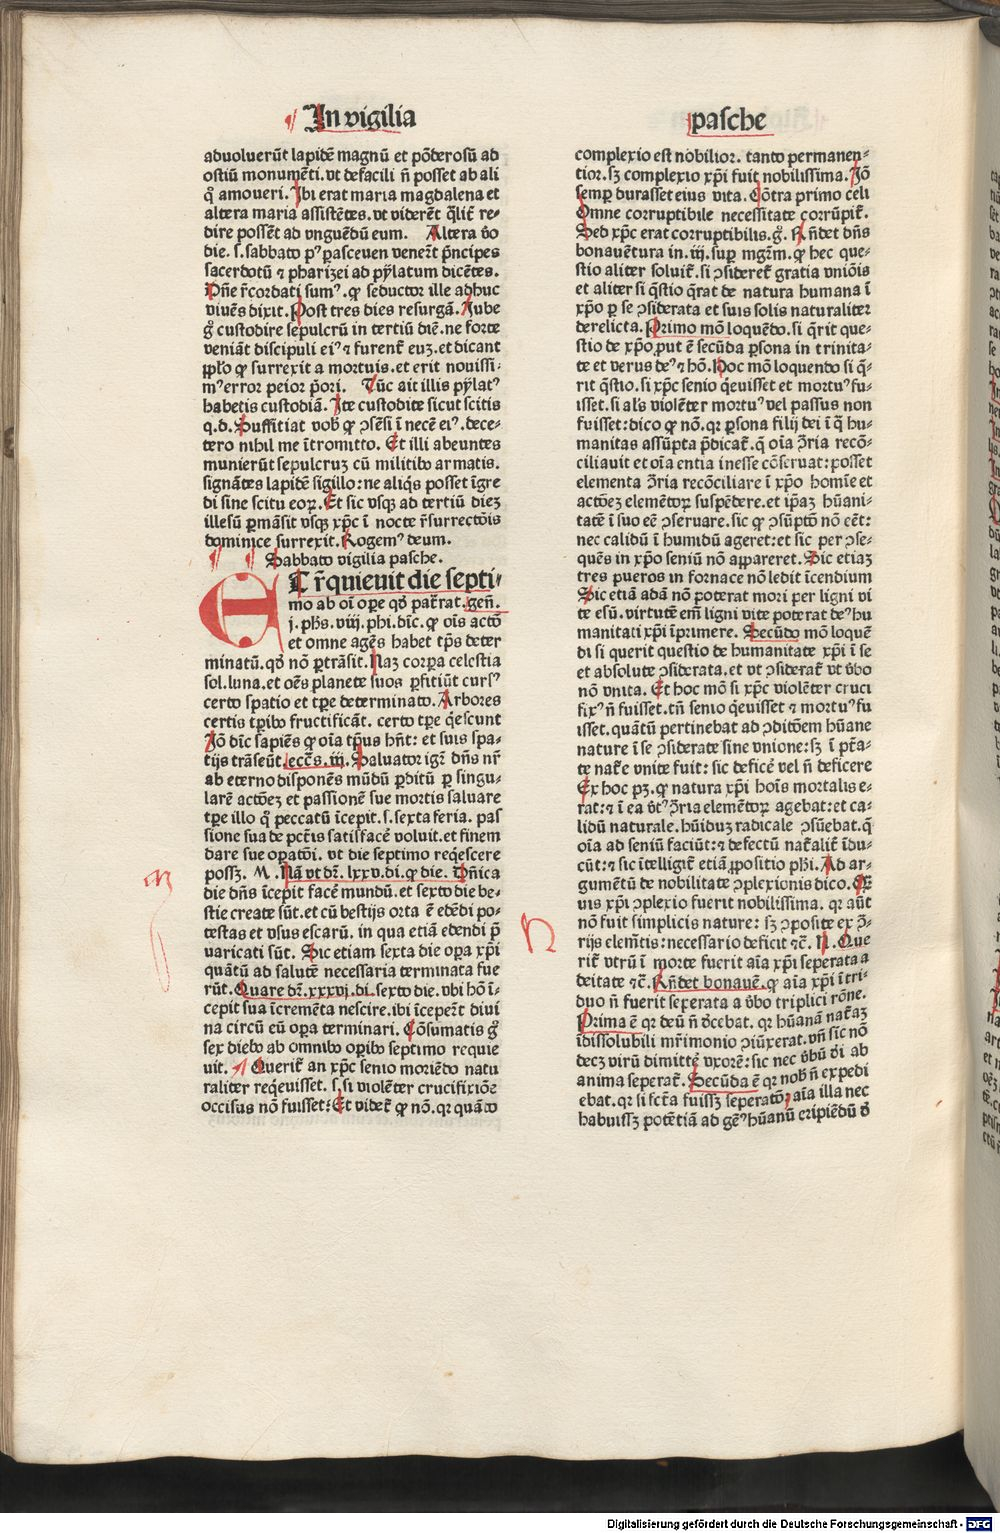 In vigilia
pasche
aduoluerūt lapidē magnū et pōderosū ad
ostiū monumēti. vt defacili n̄ posset ab ali
q̄ amoueri. Ibi erat maria magdalena et
altera maria assistētes. vt viderēt q̄lit̄ re⸗
dire possēt ad vnguēdū eum. Altera v̄o
die. s. sabbato pꝰ pasceuen venerūt p̄ncipes
sacerdotū ⁊ pharizei ad pylatum dicētes.
Dn̄e r̄cordati sumꝰ. ꝙ seductor ille adhuc
viuēs dixit. Post tres dies resurgā. Iube
g̊ custodire sepulcrū in tertiū diē. ne forte
veniāt discipuli eiꝰ ⁊ furent̄ euꝫ. et dicant
ꝓplo ꝙ surrexit a mortuis. et erit nouissi⸗
mꝰ error peior p̄ori. Tūc ait illis pylatꝰ
habetis custodiā. Ite custodite sicut scitis
q.d. Suffitiat vob̄ ꝙ ↄ̄sēsi ī necē eiꝰ. dece⸗
tero nihil me ītromitto. Et illi abeuntes
munierūt sepulcruꝫ cū militibꝰ armatis.
signātes lapidē sigillo: ne aliq̄s posset īgre
di sine scitu eoꝝ. Et sic vsqꝫ ad tertiū dieꝫ
illesū ꝑmāsit vsqꝫ xp̄c ī nocte r̄surrectōis
dominice surrexit. Rogemꝰ deum.
Sabbato vigilia pasche.
ET r̄quieuit die septi⸗
mo ab oī oꝑe qd̄ pat̄rat. gen̄.
j. ph̄s. viij. phi. dīc. ꝙ oīs actō
et omne agēs habet tp̄s deter
minatū. qd̄ nō ꝑtrāsit. Naꝫ corꝑa celestia
sol. luna. et oēs planete suos ꝑfitiūt cursꝰ
certo spatio et tꝑe determinato. Arbores
certis tꝑibꝰ fructificāt. certo tꝑe q̄escunt
Iō dīc sapiēs ꝙ oīa tp̄us hn̄t: et suis spa⸗
tijs trāseūt. eccᷤs. iij. Saluator igr̄ dn̄s nr̄
ab eterno disponēs mūdū ꝑditū ꝑ singu⸗
larē actōeꝫ et passionē sue mortis saluare
tꝑe illo q̄ peccatū īcepit. s. sexta feria. pas
sione sua de pctīs satisfacē voluit. et finem
dare sue oꝑatōi. vt die septimo req̄escere
possꝫ. M. Nā vt dr̄. lxxv. di. ꝙ die. Dn̄ica
die dn̄s īcepit facē mundū. et sexto die be⸗
stie create sūt. et cū bestijs orta ē edēdi po⸗
testas et vsus escarū. in qua etiā edendi p̄
uaricati sūt. Sic etiam sexta die oꝑa xp̄i
quātū ad salutē necessaria terminata fue
rūt. Quare dr̄. xxxvj. di. sexto die. vbi hō ī⸗
cepit sua īcremēta nescire. ibi īceperūt diui
na circū eū oꝑa terminari. Cōsumatis g̊
sex diebꝰ ab omnibꝰ oꝑibꝰ septimo requie
uit. Querit̄ an xp̄c senio moriēdo natu
raliter req̄euisset. s. si violēter crucifixiōe
occisus nō fuisset: Et videt̄ ꝙ nō. qr quāto
complexio est nobilior. tanto permanen⸗
tior. sꝫ complexio xp̄i fuit nobilissima. Iō
semꝑ durasset eius vita. Cōtra primo celi
Omne corruptibile necessitate corrūpit̄.
Sed xp̄c erat corruptibilis. g̊. Rn̄det dn̄s
bonauētura in. iij. suꝑ mgr̄m. ꝙ hec que⸗
stio aliter soluit̄. si ↄsideret̄ gratia vniōis
et aliter si q̄stio q̄rat de natura humana ī
xp̄o ꝑ se ↄsiderata et suis solis naturaliter
derelicta. Primo mō loquēdo. si q̄rit que⸗
stio de xp̄o ꝓut ē secūda ꝑsona in trinita⸗
te et verus deꝰ ⁊ hō. Hoc mō loquendo si q̄⸗
rit q̄stio. si xp̄c senio q̄euisset et mortuꝰ fu⸗
isset. si als̄ violēter mortuꝰ vel passus non
fuisset: dico ꝙ nō. qr ꝑsona filij dei ī q̄ hu⸗
manitas assūpta p̄dicat̄. q̄ oīa ↄ̄ria recō⸗
ciliauit et oīa entia inesse cōseruat: posset
elementa ↄ̄ria recōciliare ī xp̄o homīe et
actōeꝫ elemētoꝝ suspēdere. et ip̄aꝫ hūani⸗
tatē ī suo eē ↄseruare. sic ꝙ ↄsūptō nō eēt:
nec calidū ī humidū ageret: et sic per ↄse⸗
quēs in xp̄o seniū nō appareret. Sic etiaꝫ
tres pueros in fornace nō ledit īcendium
Sic etiā adā nō poterat mori per ligni vi
te esū. virtutē em̄ ligni vite poterat deꝰ hu
manitati xp̄i īprimere. Secūdo mō loquē
di si querit questio de humanitate xp̄i ī se
et absolute ↄsiderata. et vt ↄsiderat̄ vt v̄bo
nō vnita. Et hoc mō si xp̄c violēter cruci
fixꝰ n̄ fuisset. tn̄ senio q̄euisset ⁊ mortuꝰ fu
isset. quātū pertinebat ad ↄditōem hūane
nature ī se ↄsiderate sine vnione: sꝫ ī p̄ta⸗
te nat̄e vnite fuit: sic deficē vel n̄ deficere
Ex hoc pꝫ. ꝙ natura xp̄i hoīs mortalis e⸗
rat: ⁊ ī ea v̄tꝰ ↄ̄ria elemētoꝝ agebat: et ca⸗
lidū naturale. hūiduꝫ radicale ↄsūebat. q̄
oīa ad seniū faciūt: ⁊ defectū nat̄alit̄ īdu⸗
cūt: ⁊ sic ītelligit̄ etiā ꝓpositio ph̄i. Ad ar⸗
gumētū de nobilitate ↄplexionis dico. Qꝫ
uis xp̄i ↄplexio fuerit nobilissima. qr aūt
nō fuit simplicis nature: sꝫ ↄposite ex ↄ̄⸗
rijs elemētis: necessario deficit ⁊c̄. N. Que
rit̄ vtrū ī morte fuerit aīa xp̄i seperata a
deitate ⁊c̄. Rn̄det bonauē. ꝙ aīa xp̄i ī tri⸗
duo n̄ fuerit seperata a v̄bo triplici rōne.
Prima ē qr deū n̄ decebat. qr hūanā nat̄aꝫ
īdissolubili mr̄imonio ↄiūxerat. vn̄ sic nō
decꝫ virū dimittē vxorē: sic nec v̄bū d̄i ab
anima seperat̄. Secūda ē qr nob̄ n̄ expedi
ebat. qr si fctā fuissꝫ seperatō, aīa illa nec
habuissꝫ potētiā ad genꝰ hūanū eripiēdū d̄
M
N
Digitalisierung gefördert durch die Deutsche Forschungsgemeinschaft - DFG